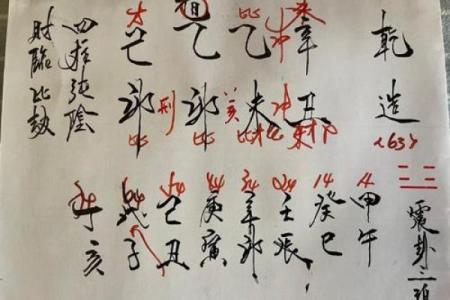 乾造
<63>
杀
辛丑
比
乙未
日
乙卯
才
己卯
四柱純陰
財臨比劫
4
甲午
14
癸巳
24
壬辰
34
辛卯
44
庚寅
54
己丑
64
戊子
亥
刑
冲
震卦三